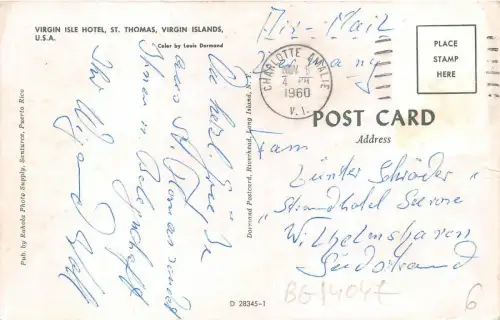 VIRGIN ISLE HOTEL, ST. THOMAS, VIRGIN ISLANDS,
U.S.A.
Color by Louis Dormand
Air-Mail
Germany
PLACE
STAMP
HERE
CHARLOTTE AMALIE
4 PM
1960
V.I.
POST CARD
Address
Dormand Postcard, Riverhead, Long Island, N.Y.
Pub. by Rahola Photo Supply, Santurce, Puerto Rico
Die herzl. Grüße
aus St. Thomas sendet
Ihnen u. Belegschaft
Ihr
Fam
Günter Schröder
"Strandhotel
Wilhelmshaven
Südstrand
D 28345-1
6